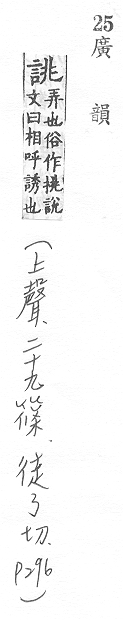 25廣韻
誂弄也俗作挑說
文曰相呼誘也
(上聲、二十九篠、徒了切、P296)